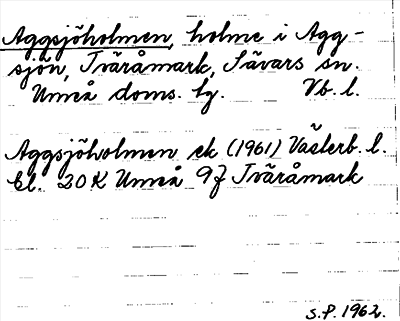 Aggsjöholmen, holme i Agg-
sjön, Tväråmark, Sävars sn.
Umeå doms. lg. Vb. l.
Aggsjöholmen ek (1961) Västerb. l.
bl. 20 K Umeå 9f Tväråmark
S.P. 1962.